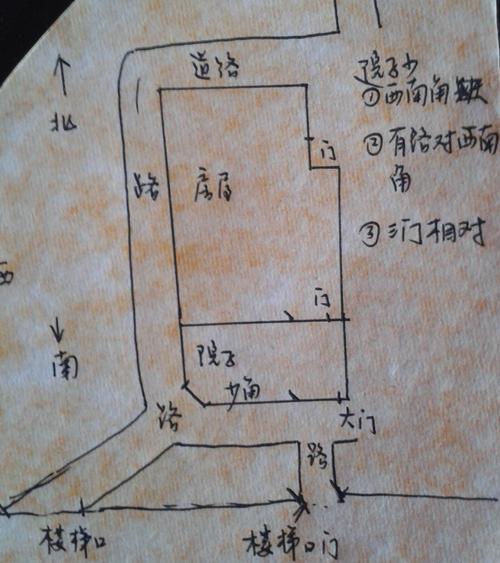 道路
院子少
①西南角缺
北
门
②有路对西南
角
路
房屋
③三门相对
西
门
南
院子
少角
路
大门
路
楼梯口
楼梯口门